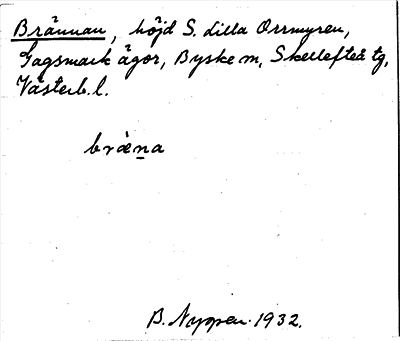 Brännan, höjd S. Lilla Orrmyren,
Gagsmark ägor, Byske m, Skellefteå tg,
Västerb. l.
bräna
B. Nyppen 1932.